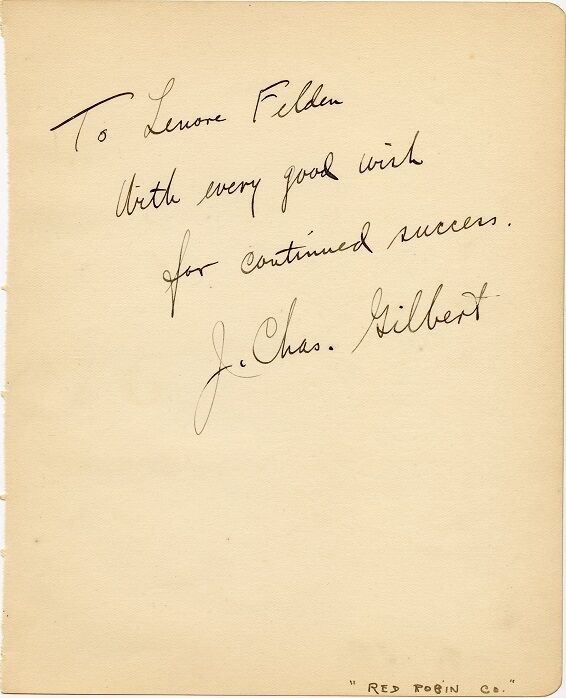 To Lenore Felden
With every good wish
for continued success.
J. Chas. Gilbert
"RED ROBIN CO."